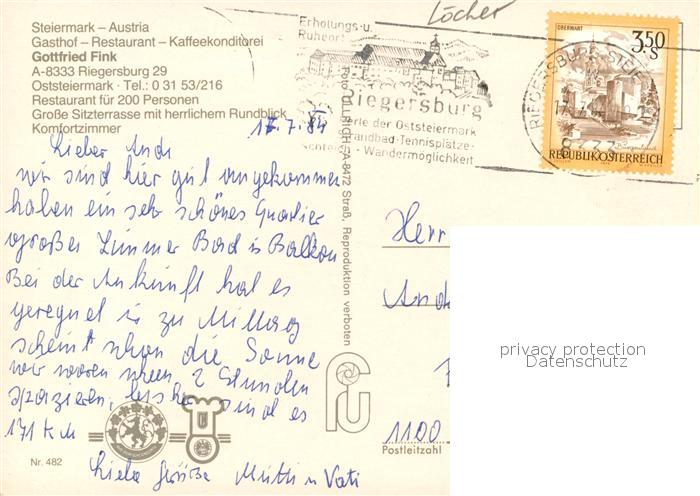 Löcher
Steiermark – Austria
Gasthof – Restaurant – Kaffeekonditorei
Gottfried Fink
A-8333 Riegersburg 29
Oststeiermark · Tel.: 0 31 53/216
Restaurant für 200 Personen
Große Sitzterrasse mit herrlichem Rundblick
Komfortzimmer
17.7.84
Lieber Andi
wir sind hier gut angekommen
haben ein sehr schönes Quartier
großes Zimmer Bad u Balkon
Bei der Ankunft hat es
geregnet u zu Mittag
scheint schon die Sonne
wir waren 2 Stunden
spazieren, bisher sind es
171 km
Liebe Grüße Mutti u Vati
Nr. 482
Erholungs-u.
Ruheort
Riegersburg
Perle der Oststeiermark
Strandbad-Tennisplätze-
Wandermöglichkeit
A-8472 Straß, Reproduktion verboten
OBERWART
3.50
S
Burgenland
REPUBLIK ÖSTERREICH
RIEGERSBURG, STEI
8333
Herr
And
1100
Postleitzahl
privacy protection
Datenschutz